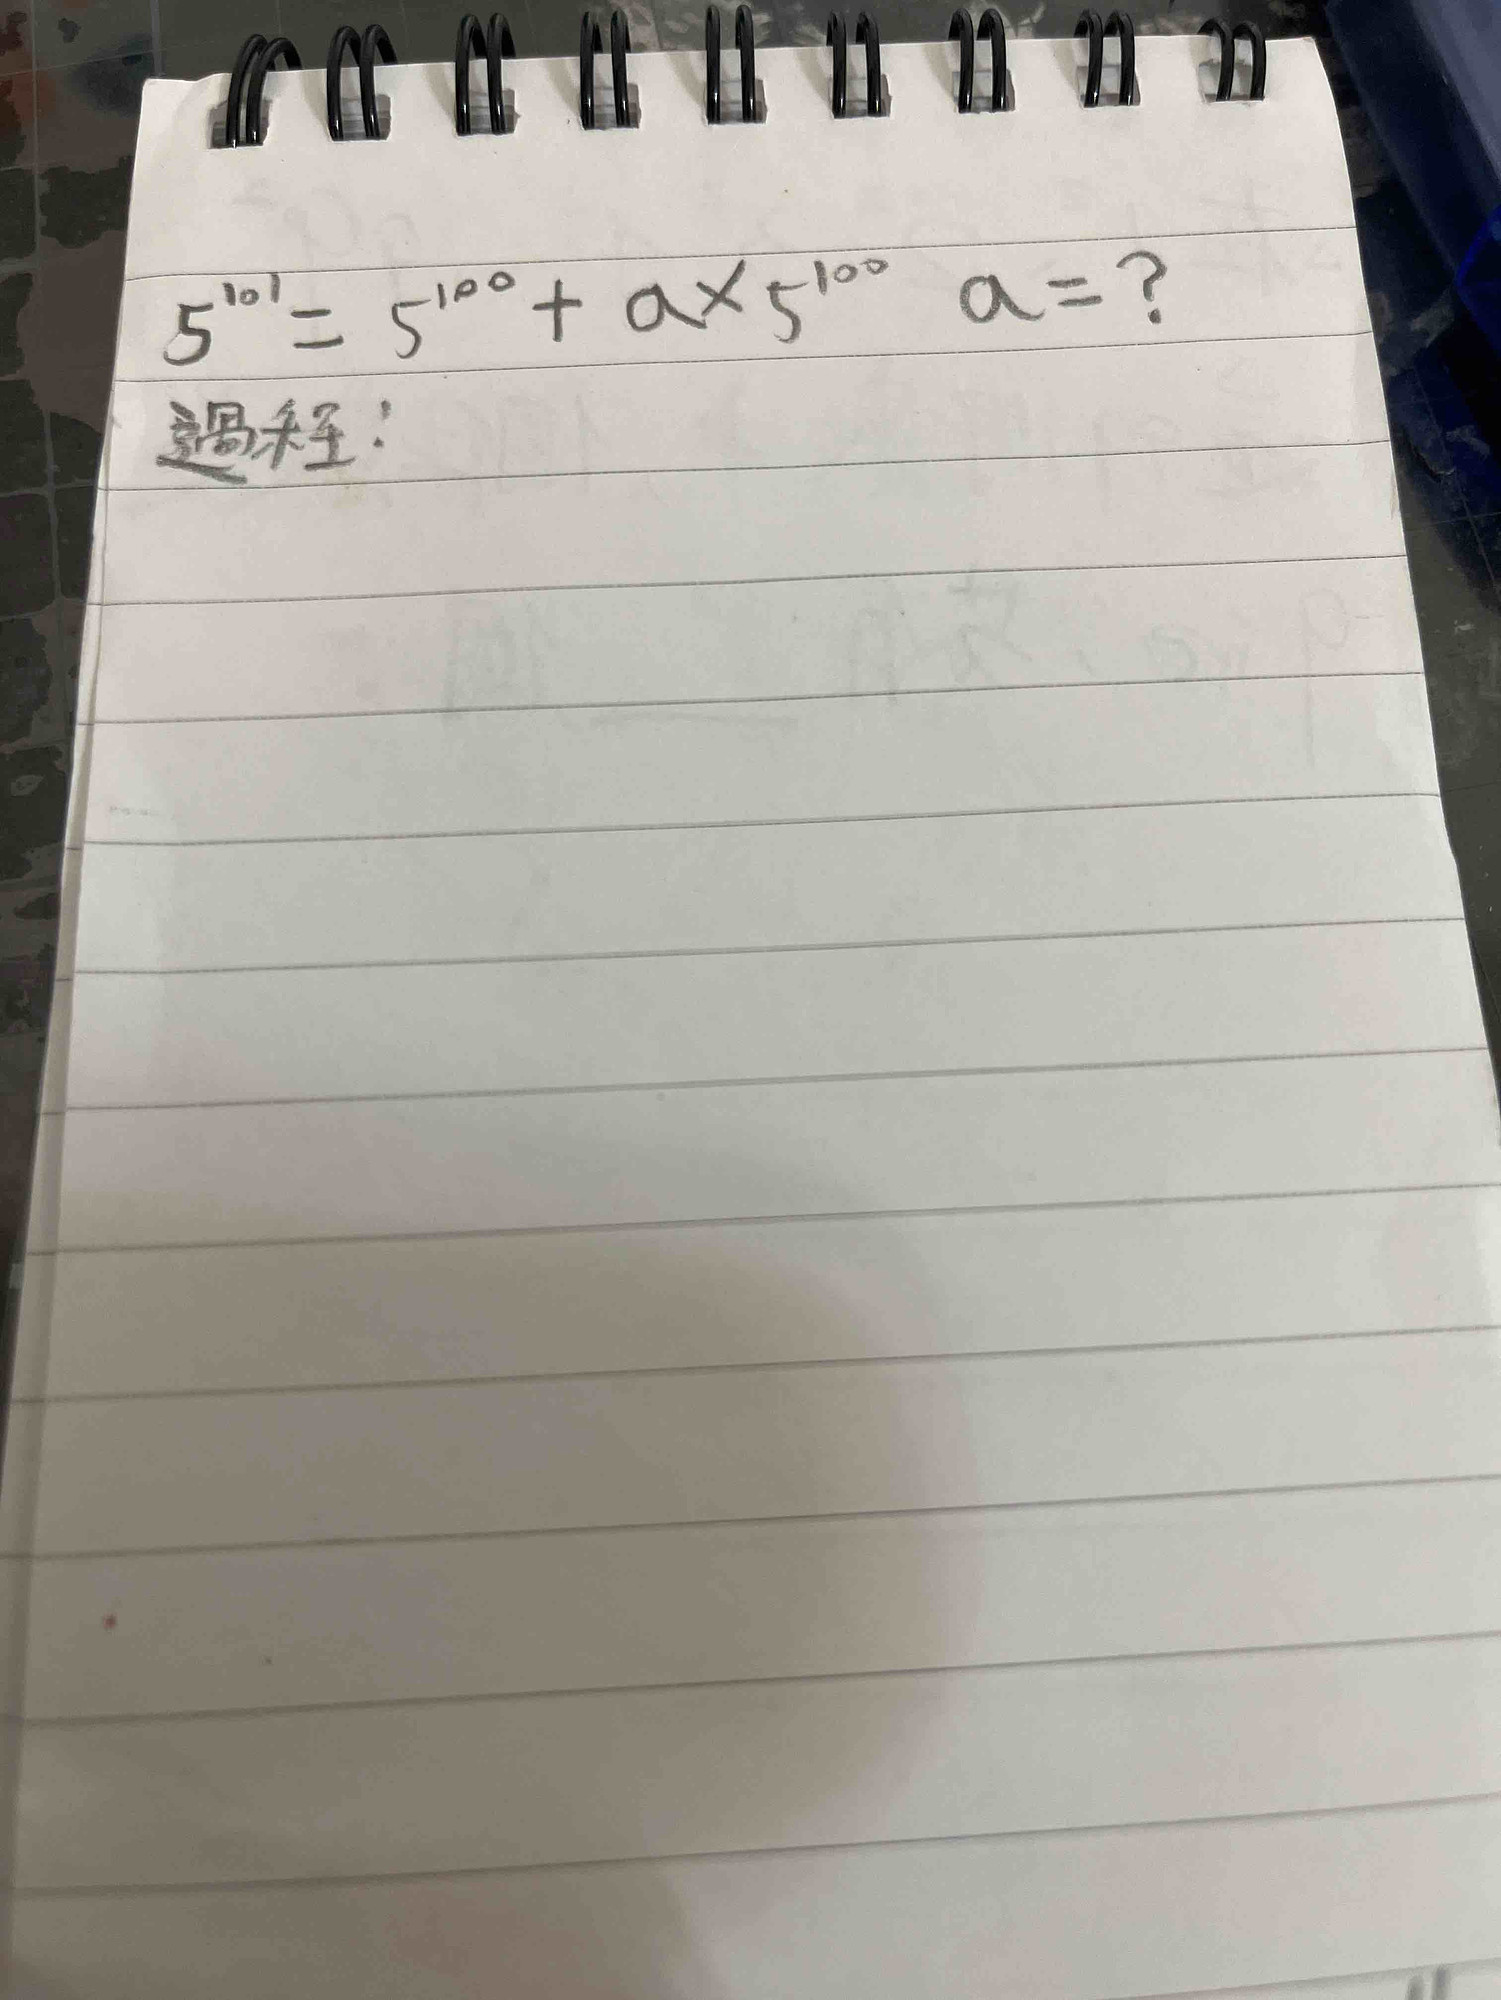 5¹⁰¹ = 5¹⁰⁰ + a × 5¹⁰⁰ a = ?
過程：